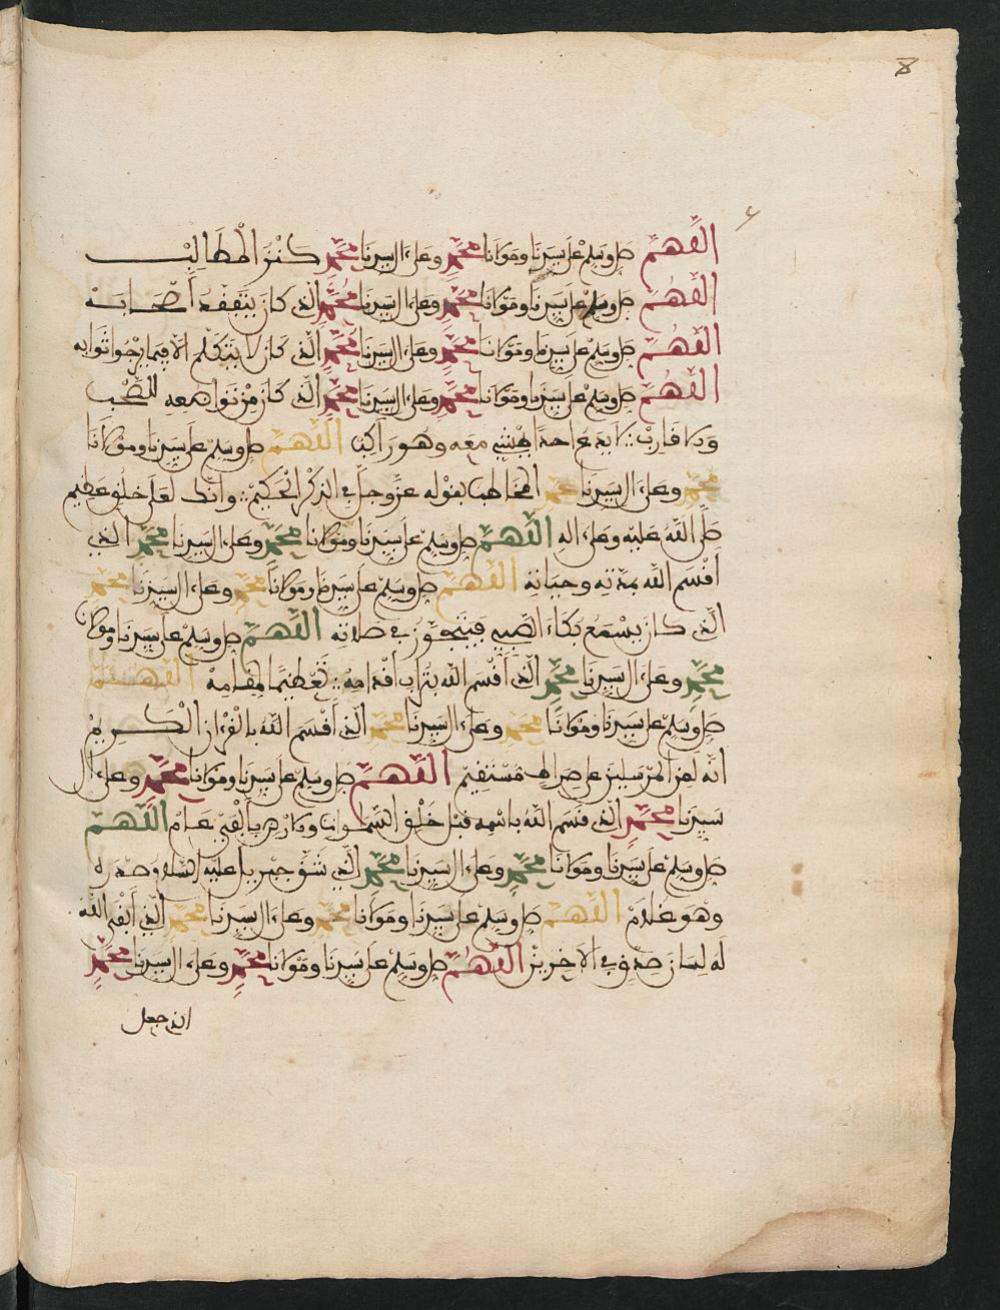 8
اللهم صل وسلم على سيدنا ومولانا محمد وعلى ءال سيدنا محمد كنز المطالب
اللهم صل وسلم على سيدنا ومولانا محمد وعلى ءال سيدنا محمد الذي كان يتفقد أصحابه
اللهم صل وسلم على سيدنا ومولانا محمد وعلى ءال سيدنا محمد الذي كان لا يتكلم الا فيما يرجوا ثوابه
اللهم صل وسلم على سيدنا ومولانا محمد وعلى ءال سيدنا محمد الذي كان من تواضعه للصحب
و فارب لا يدع احدا يمشي معه وهو راكب اللهم صل وسلم على سيدنا ومولانا
محمد وعلى ءال سيدنا محمد المخاطب بقوله عز وجل في الذكر الحكيم وانك لعلى خلق عظيم
صلى الله عليه وعلى ءاله اللهم صل وسلم على سيدنا ومولانا محمد وعلى ءال سيدنا محمد الذي
أقسم الله بمدته وحياته اللهم صل وسلم على سيدنا ومولانا محمد وعلى ءال سيدنا محمد
الذي كان يسمع بكاء الصبي فيتجوز في صلاته اللهم صل وسلم على سيدنا ومولانا
محمد وعلى ءال سيدنا محمد الذي أقسم الله بتراب أقدامه تعظيما لمقامه اللهم
صل وسلم على سيدنا ومولانا محمد وعلى ءال سيدنا محمد الذي أقسم الله بالقرءان الكريم
انه لمن المرسلين على صراط مستقيم اللهم صل وسلم على سيدنا ومولانا محمد وعلى ءال
سيدنا محمد الذي قسم الله باسمه قبل خلق السماوات والارض بألفي عام اللهم
صل وسلم على سيدنا ومولانا محمد وعلى ءال سيدنا محمد الذي شق جبريل عليه السلام صدره
وهو غلام اللهم صل وسلم على سيدنا ومولانا محمد وعلى ءال سيدنا محمد الذي أبقى الله
له لسان صدق في الاخرين اللهم صل وسلم على سيدنا ومولانا محمد وعلى ءال سيدنا محمد
الذي جعل